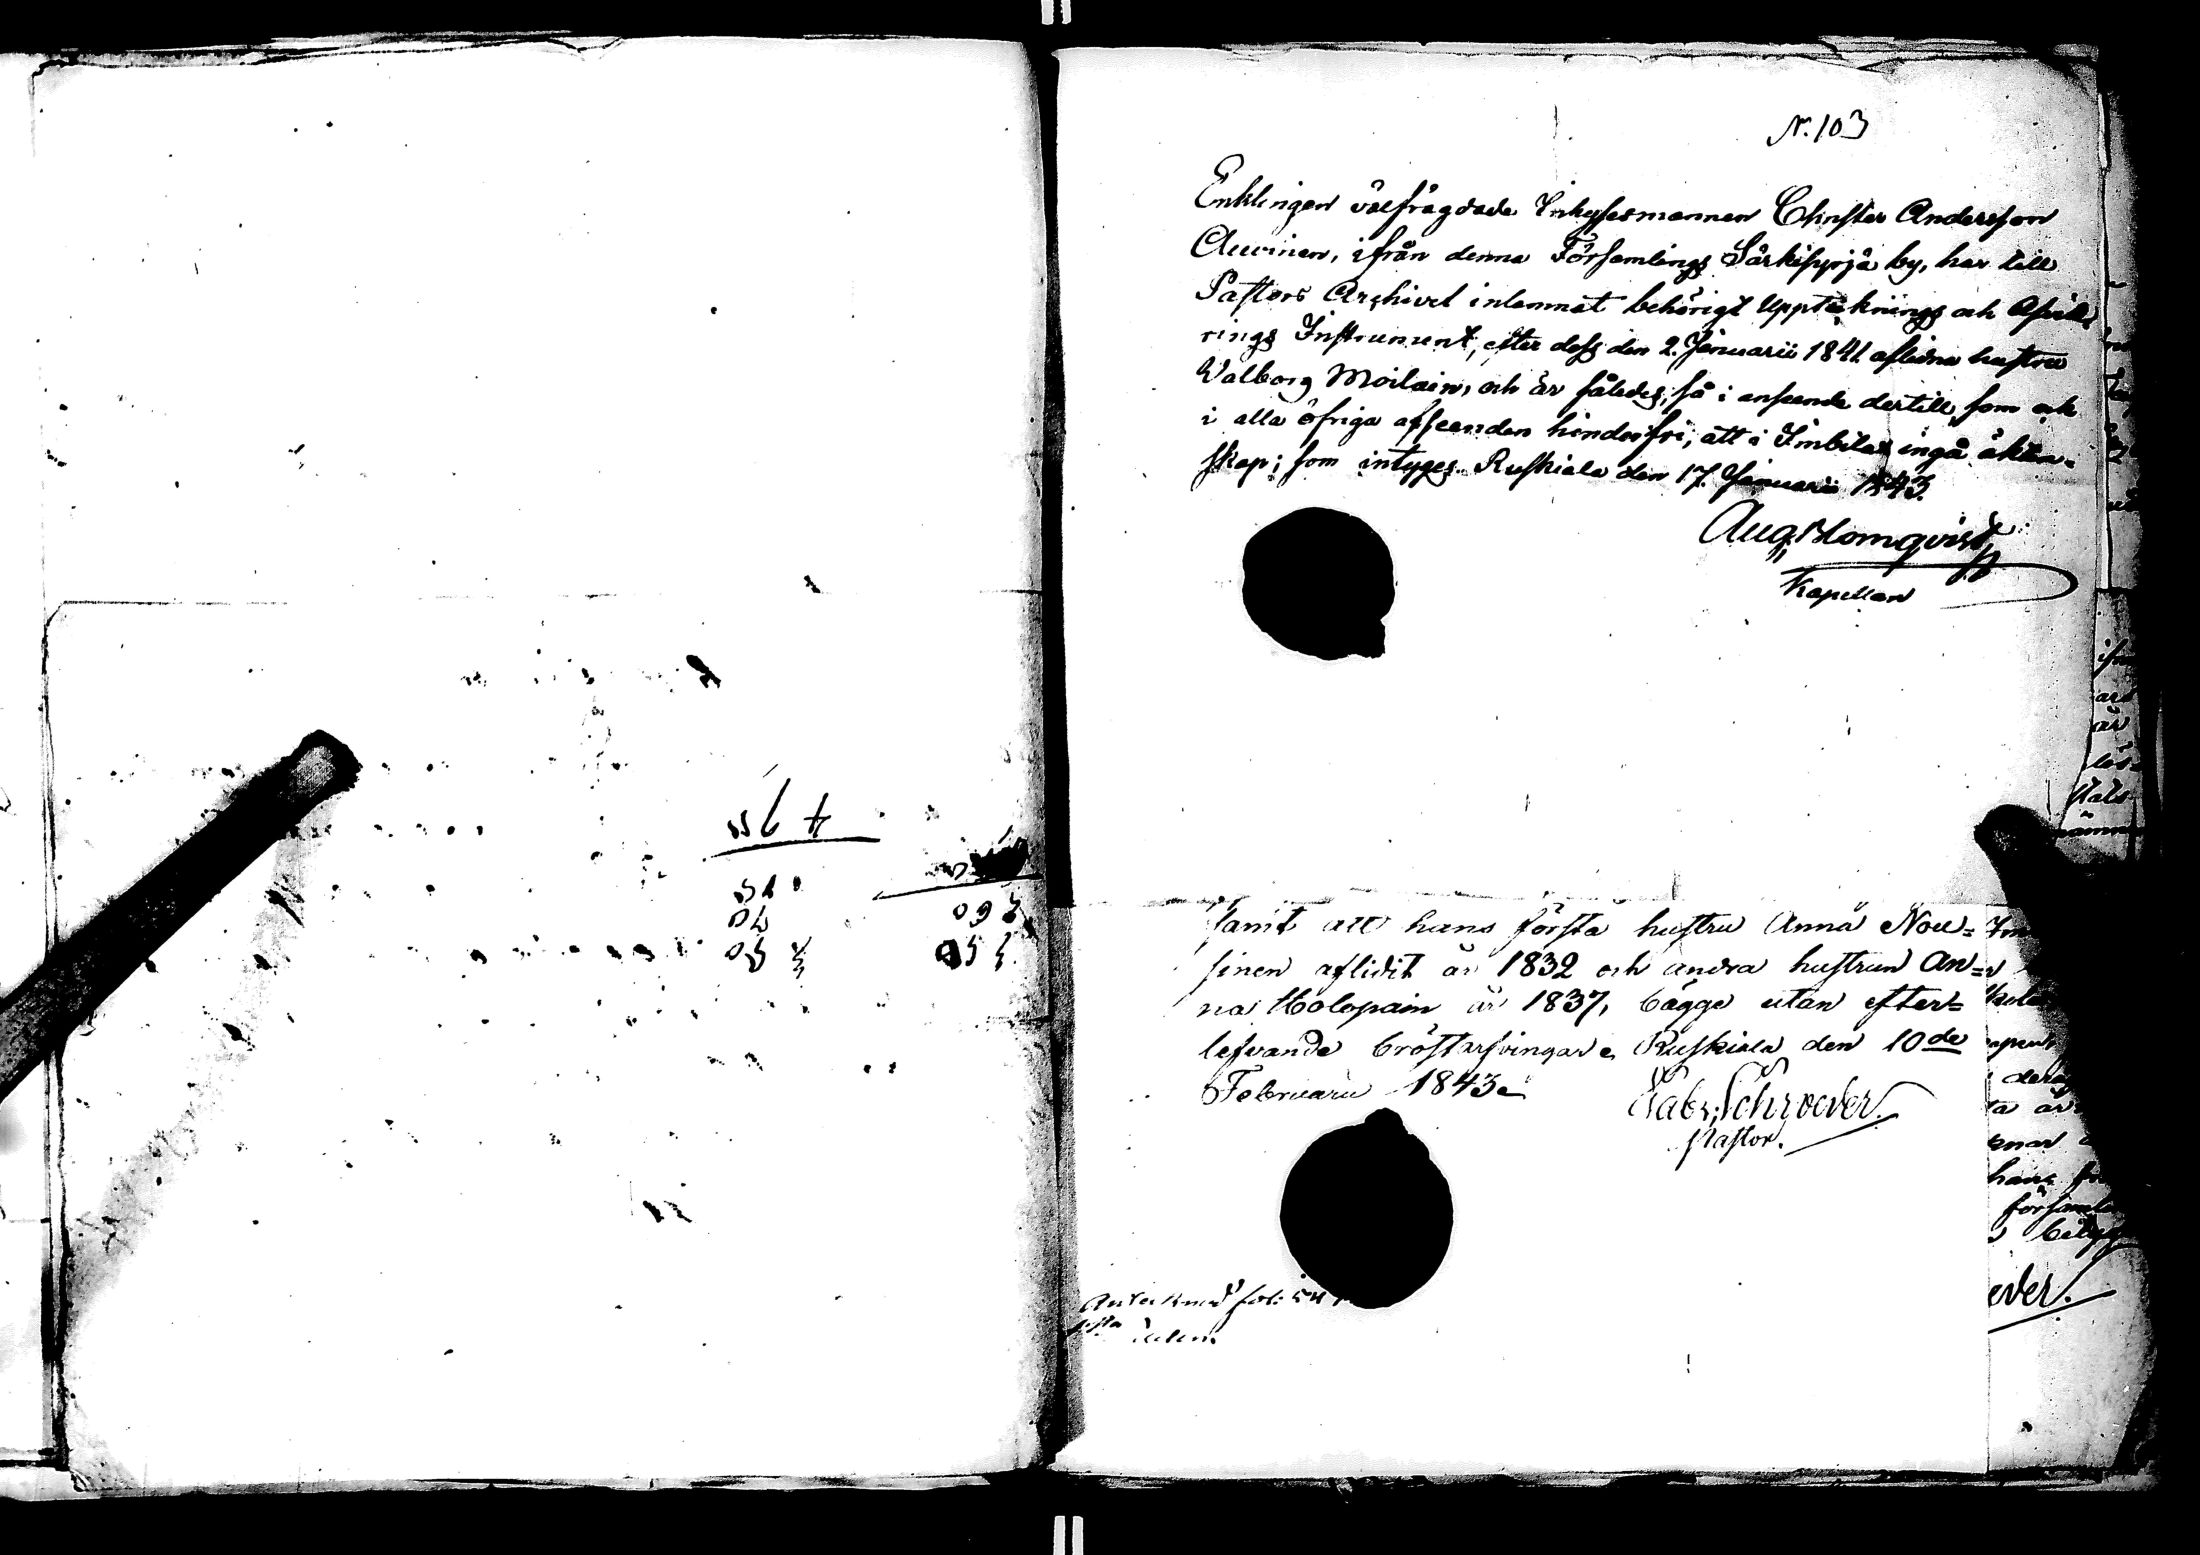 N. 103
Enklingen välfrägdade Inhysesmannen Christer Andersson
Auvinen, ifrån denna Församlings Särkisyrjä by, har till
Pastors Archivet inlemnat behörigt Upptecknings och Afvitt-
rings Instrument, efter dess den 2. Januarii 1841 aflidna hustru
Walborg Moilain, och är således, så i anseende dertill som ock
i alla öfriga afseenden hindersfri, att i Imbilax ingå ägten-
skap; som intygas. Ruskiala den 17. Januarii 1843.
Aug. Blomqvist
Kapellan
samt att hans första hustru Anna Nou=
sinen aflidit år 1832 och andra hustrun An=
na Holopain år 1837, bägge utan efter=
lefvande bröstarfvingar. Ruskiala den 10de
Februarii 1843.
Gabr. Schroever.
Pastor.
Antecknad fol: